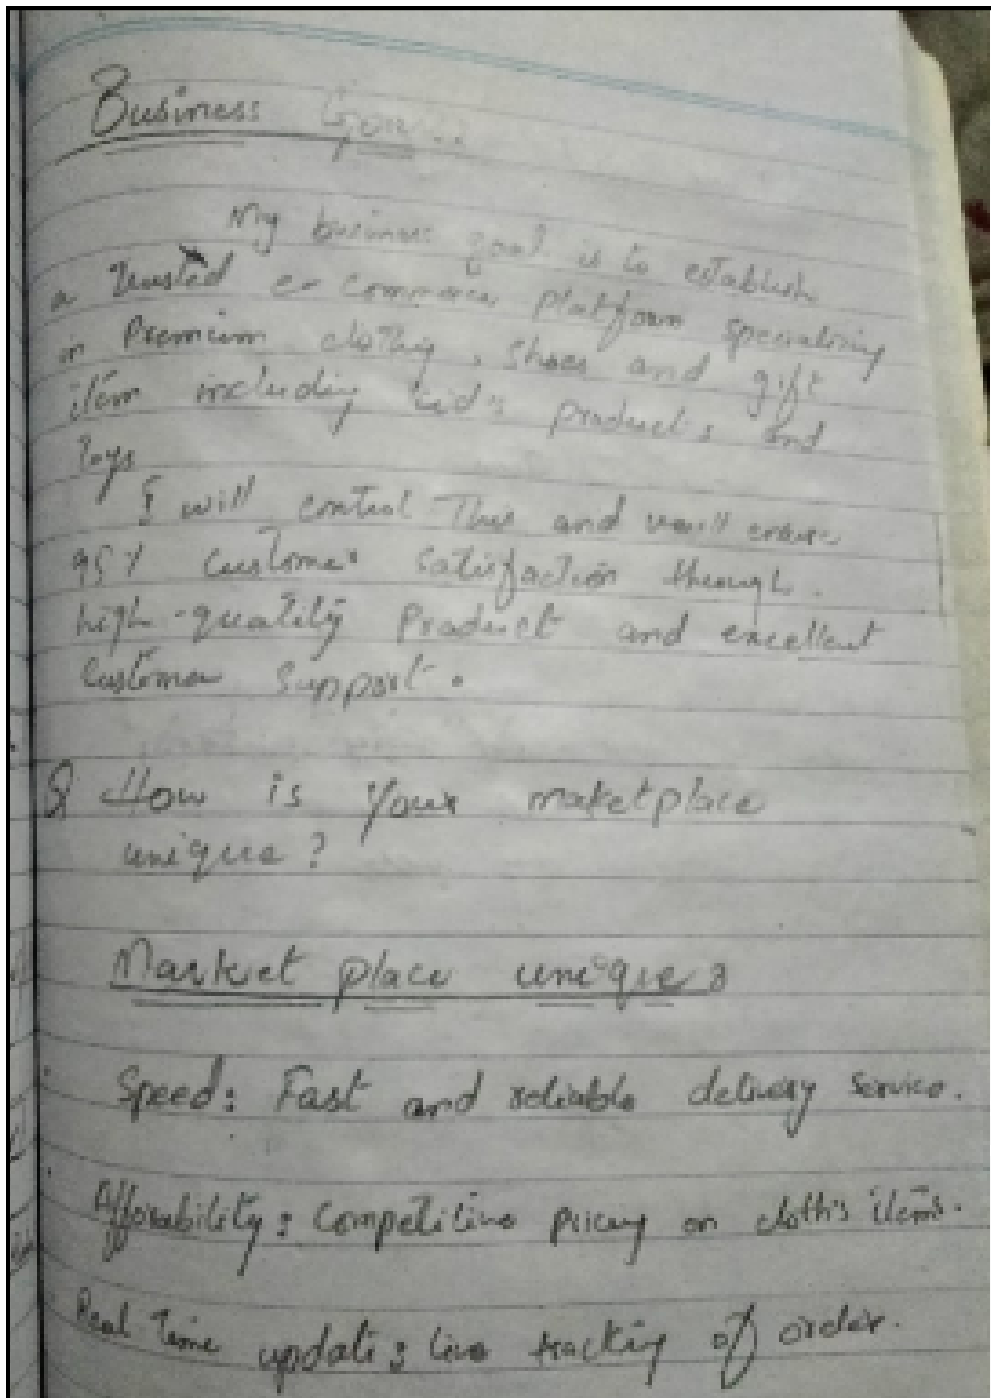 Business Goal:
My business goal is to establish
a trusted e-commerce platform specializing
in Premium clothing, shoes and gift
item including kid's products and
toys
I will control This and will ensure
95% Customer satisfaction through.
high-quality Product and excellent
Customer Support.
Q How is your maketplace
unique?
Market place unique:
Speed: Fast and reliable delivery service.
Afforability: Competitive pricing on cloths items.
Real time update: live tracking of order.